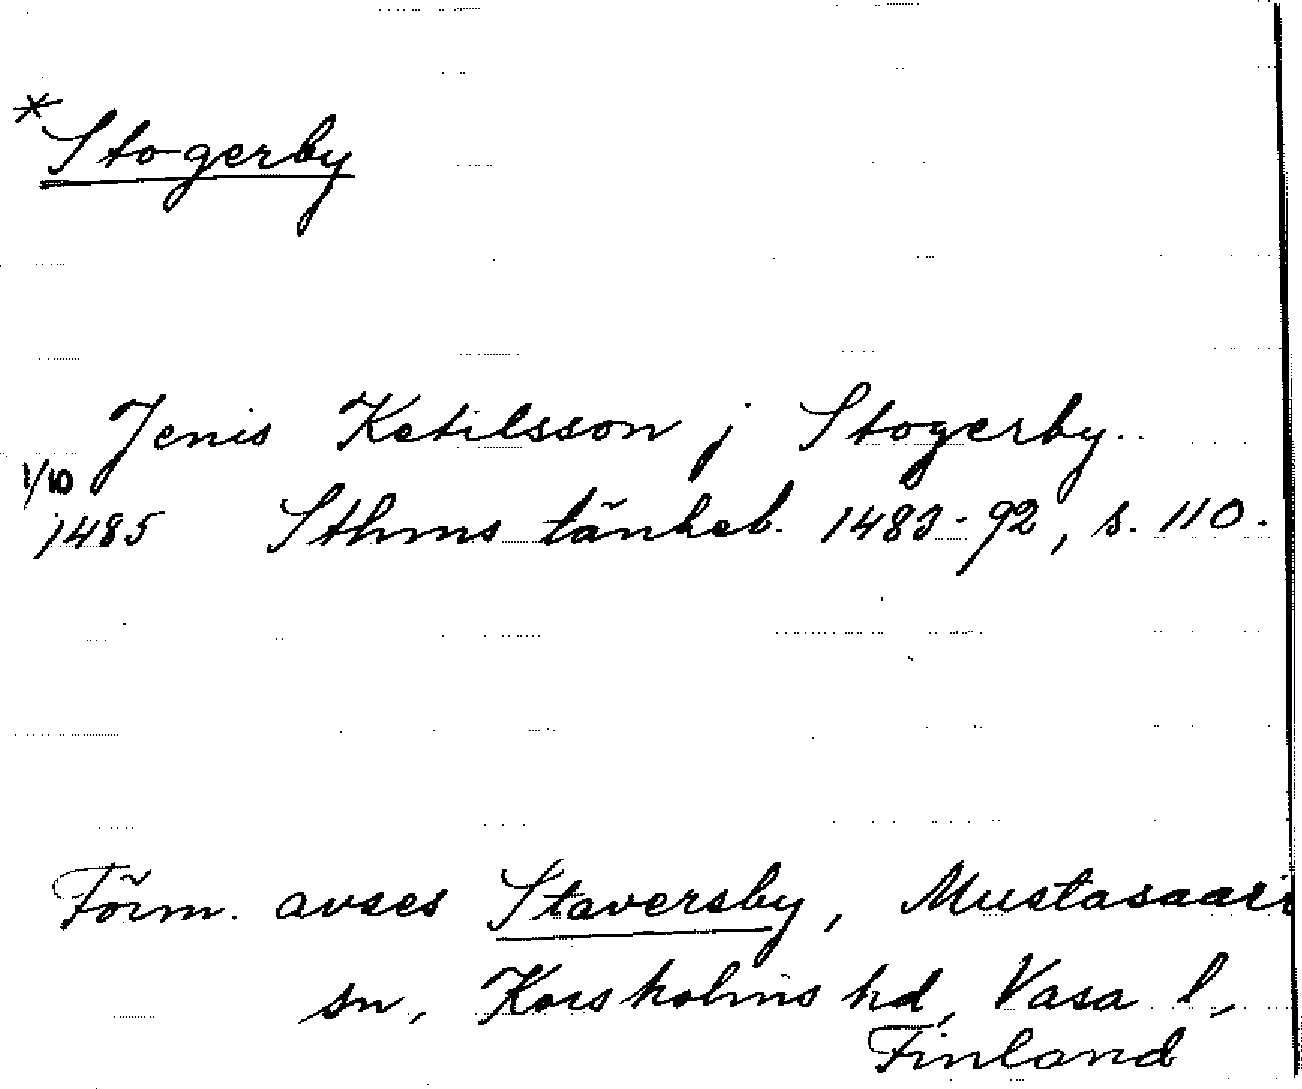 *Stogerby
Jenis Ketilsson j Stogerby
1/10
1485 Sthms tänkeb. 1483-92, s. 110.
Förm. avses Staversby, Mustasaari
sn, Korsholms hd, Vasa l,
Finland